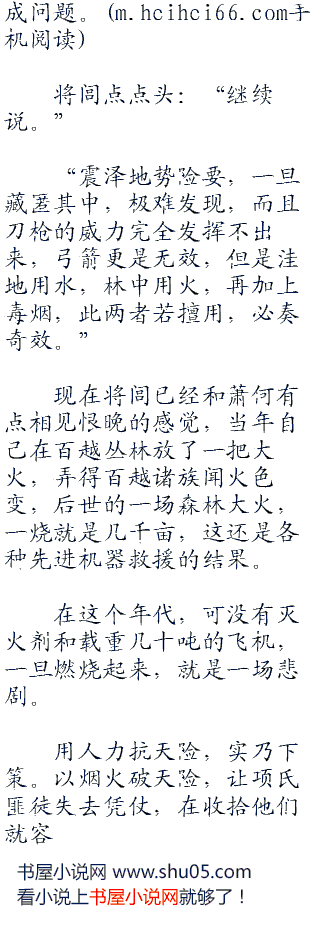 成问题。(m.hcihci66.com手
机阅读)
将闾点点头：“继续
说。”
“震泽地势险要，一旦
藏匿其中，极难发现，而且
刀枪的威力完全发挥不出
来，弓箭更是无效，但是洼
地用水，林中用火，再加上
毒烟，此两者若擅用，必奏
奇效。”
现在将闾已经和萧何有
点相见恨晚的感觉，当年自
己在百越丛林放了一把大
火，弄得百越诸族闻火色
变，后世的一场森林大火，
一烧就是几千亩，这还是各
种先进机器救援的结果。
在这个年代，可没有灭
火剂和载重几十吨的飞机，
一旦燃烧起来，就是一场悲
剧。
用人力抗天险，实乃下
策。以烟火破天险，让项氏
匪徒失去凭仗，在收拾他们
就容
书屋小说网 www.shu05.com
看小说上书屋小说网就够了！